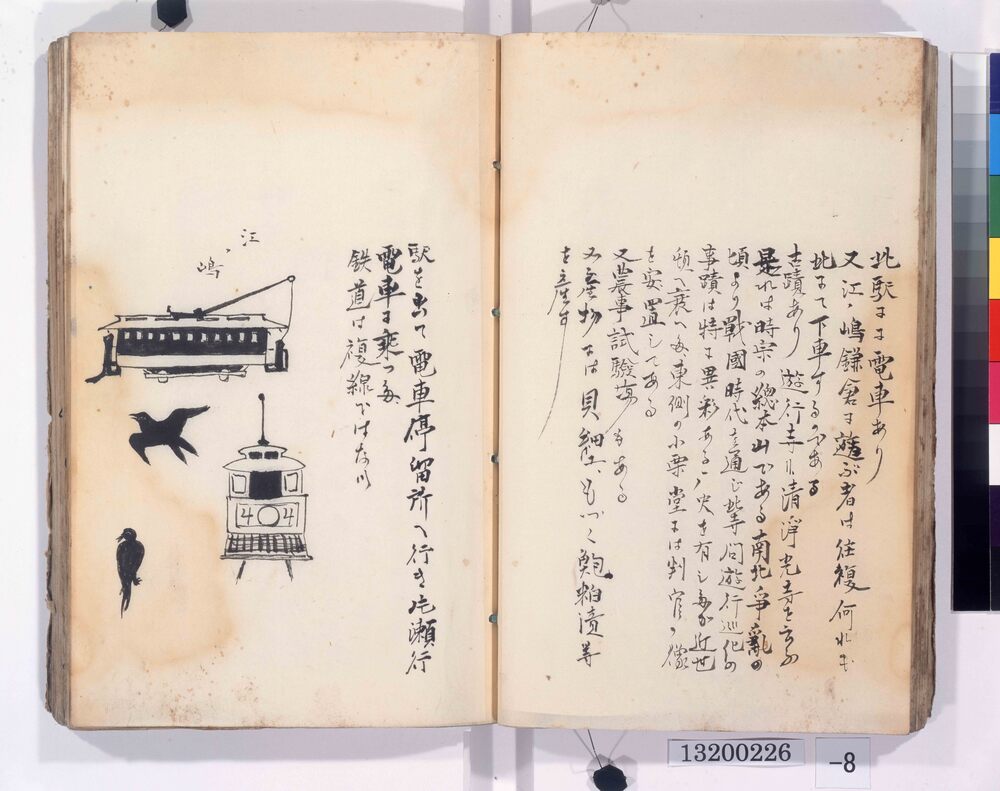 此駅よりは電車あり
又江ノ嶋鎌倉に遊ぶ者は往復何れも
此にて下車するのである
古蹟あり 遊行寺は清浄光寺と云ふ
是れは時宗の總本山である南北争乱の
頃より戰國時代を通じ此寺 遊行巡化の
事蹟は特に異彩ある 史を有し 近世
頗 衰へ 東側の小栗堂には判官の像
を安置してある
又農事試驗場もある
又産物には貝細工、もづく鮑粕漬等
を産す
駅を出て電車停留所へ行き片瀬行
電車に乗つた
鉄道は複線ではない
江ノ嶋
404
13200226
-8